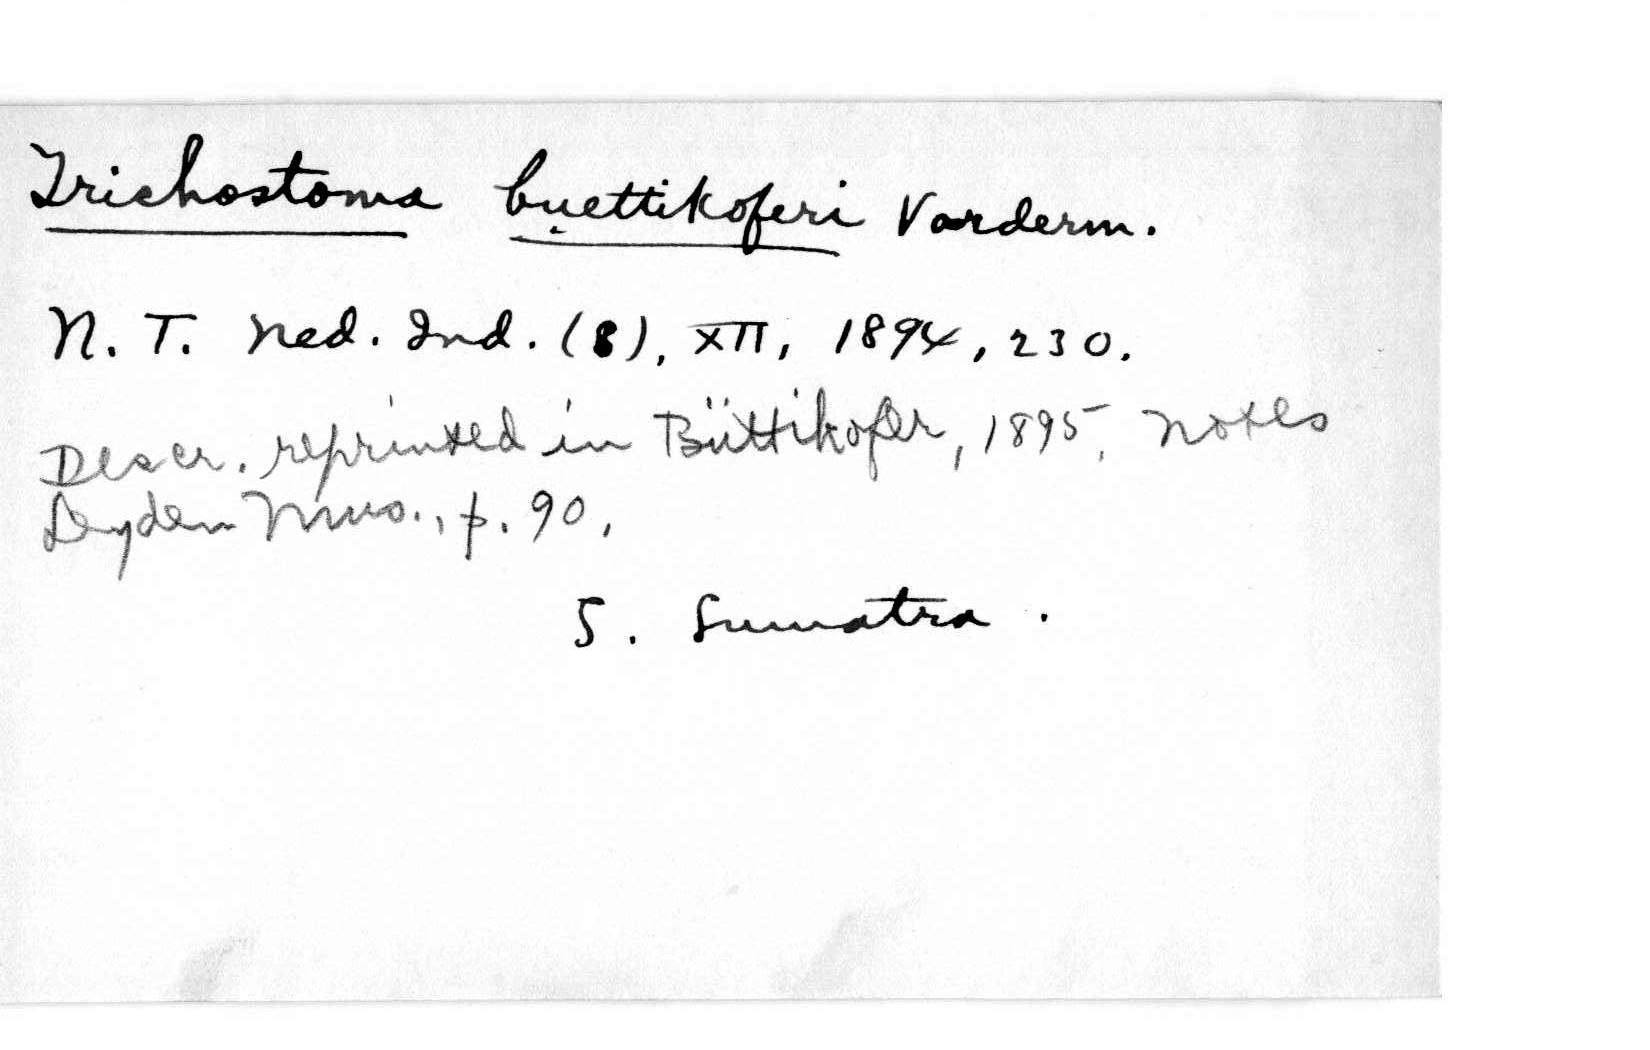 Trichostoma buettikoferi Vorderm.
N. T. Ned. Ind. (8), XII, 1894, 230.
Descr. reprinted in Büttikofer, 1895, Notes
Leyden Mus., p. 90.
S. Sumatra.